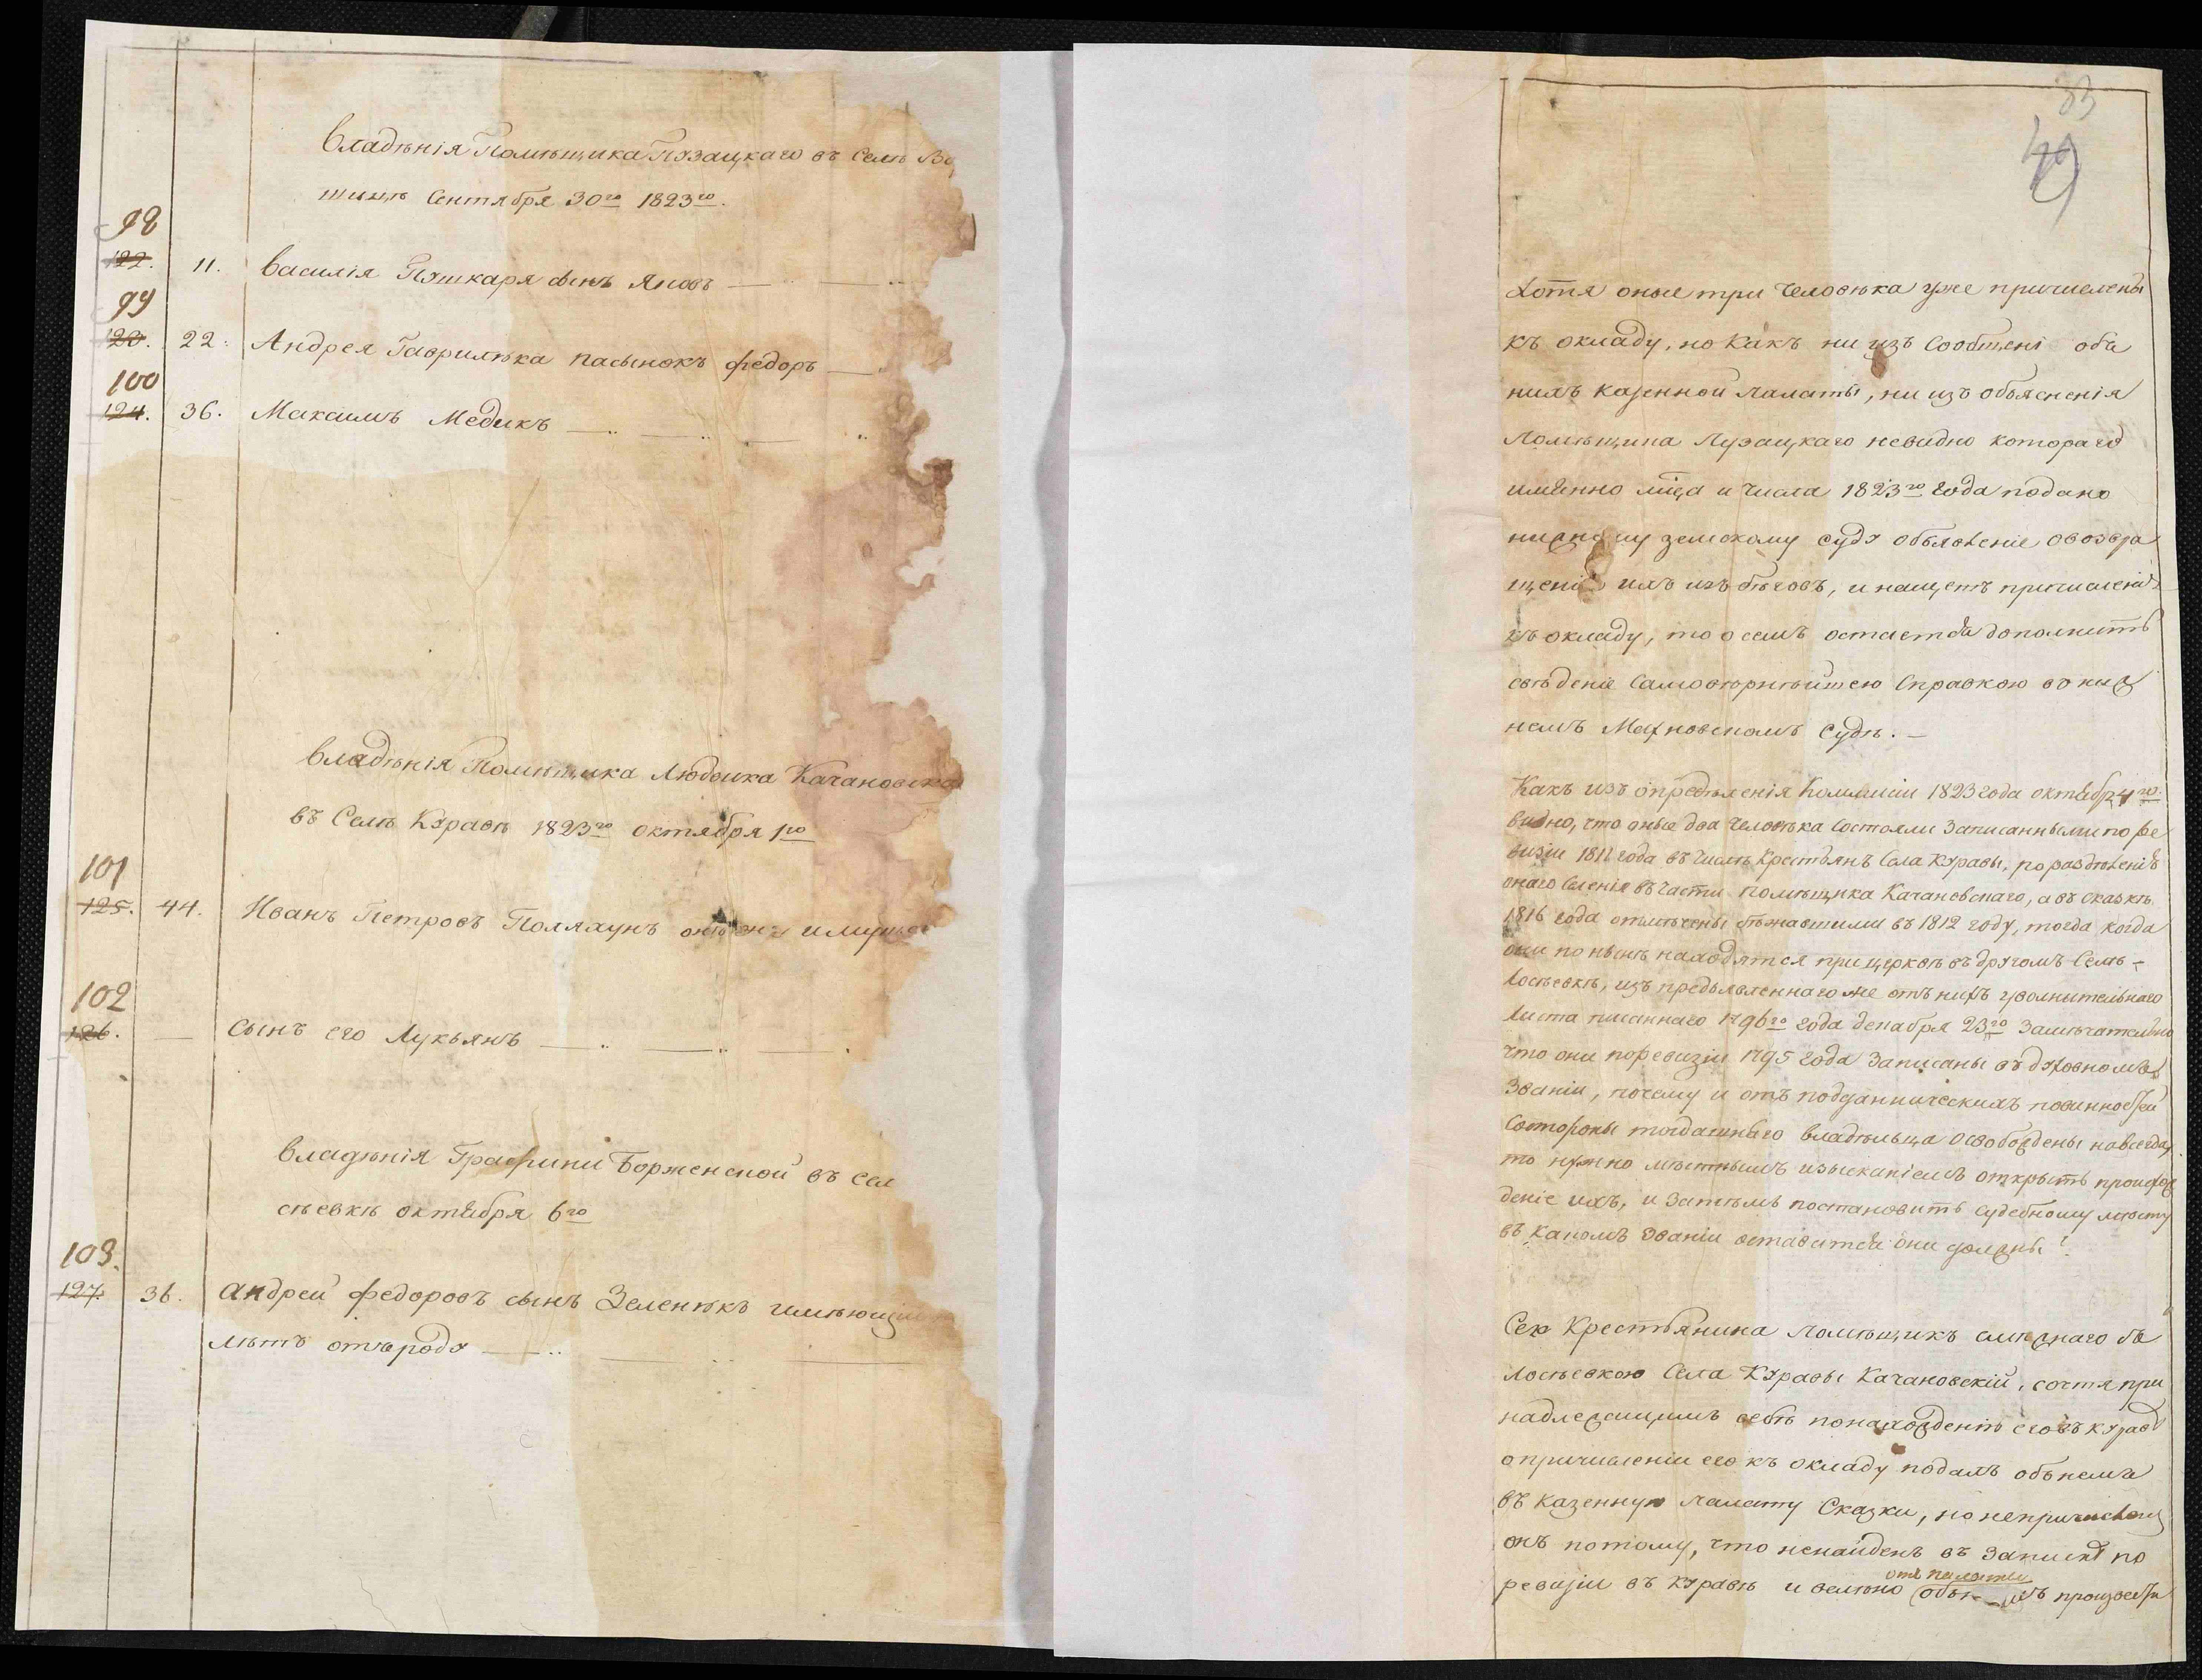 Владѣнія Помѣщика Пузацкаго въ Селѣ Во
шицѣ Сентября 30го 1823го.
98
122. 11. Василія Пушкаря сынъ Яковъ
99
123. 22. Андрея Гаврилюка пасынокъ Федоръ
100
124. 36. Максимъ Медикъ
Владѣнія Помѣщика Людвика Качановска
въ Селѣ Куравѣ 1823го октября 1го
101
125. 44. Иванъ Петровъ Поллаунъ
102
126. Сынъ его Лукьянъ
Владѣнія Графини Борженской въ Сел
сѣевкѣ октября 6го
103.
127. 36. Андрей Федоровъ сынъ Зеленюкъ имѣющій
лѣтъ отъ роду
33
49
Хотя оные три человѣка уже причислены
къ окладу, но какъ ни изъ Сообщені объ
нихъ казенной палаты, ни изъ объясненія
Помѣщика Пузацкаго невидно котораго
именно мца и числа 1823го года подано
нижнему земскому суду объявленіе овозвра
щеніи ихъ изъ бѣговъ, и нащетъ причисленія
къ окладу, то о семъ остается дополнить
свѣденіе Самовѣрнѣйшею Справкою въ ниж
немъ Махновскомъ Судѣ.
Какъ изъ опредѣленія Коммисіи 1823 года октября 4го
видно, что оные два человѣка состояли записанными по ре
визіи 1811 года въ числѣ крестьянъ Села Куравы, по раздѣленіи
онаго Селенія въ части помѣщика Качановскаго, а въ сказкѣ
1816 года отмѣчены бѣжавшими въ 1812 году, тогда когда
они по нынѣ находятся при церквѣ въ другомъ Селѣ
Лосѣевкѣ, изъ предъявленнаго же отъ нихъ уволнительнаго
листа писаннаго 1796го года декабря 23го замѣчательно
что они по ревизіи 1795 года записаны въ духовномъ
званіи, почему и отъ подданническихъ повинностей
состороны тогдашняго владѣльца освобождены навсегда,
то нужно мѣстнымъ изысканіемъ открыть происхож
деніе ихъ, и затѣмъ постановить судебному мѣсту
въ какомъ званіи оставатся они должны?
Сего Крестьянина помѣщикъ смѣжнаго съ
Лосѣевкою Села Куравы Качановскій, сочтя при
надлежащимъ себѣ по нахожденію его въ Курав
о причисленіи его къ окладу подалъ объ немъ
въ казенную палату Сказки, но непричисленъ
онъ потому, что ненайденъ въ запискѣ по
отъ палаты
ревизіи въ Куравѣ и велѣно объ немъ произвесть